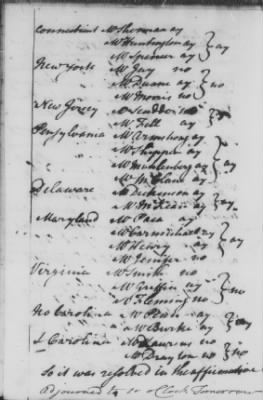 Connecticut Mr Sherman ay
Mr Huntington ay } ay
Mr Spencer ay
New York Mr Jay no
Mr Duane ay } no
Mr Morris no
New Jersey Mr Scudder
Mr Fell ay
Pensylvania Mr Armstrong ay
Mr Shippen ay
Mr Muhlenberg ay } ay
Mr McClane ay
Delaware Mr Dickenson ay
Mr McKean ay
Maryland Mr Paca ay
Mr Carmichael ay
Mr Henry ay } ay
Mr Jenifer no
Virginia Mr Smith no
Mr Griffin ay } no
Mr Fleming no
No Carolina Mr Penn ay
Mr Burke ay } ay
S Carolina Mr Laurens no
Mr Drayton no } no
So it was resolved in the affirmative
adjourned to 10 o Clock Tomorrow